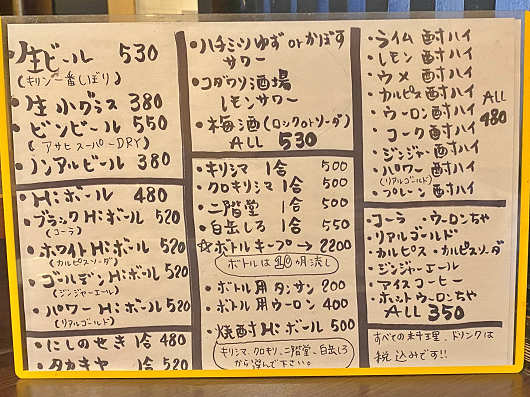 ・生ビール 530
(キリン一番しぼり)
・生小グラス 380
・ビンビール 550
(アサヒスーパーDRY)
・ノンアルビール 380
・Hiボール 480
・ブラックHiボール 520
(コーラ)
・ホワイトHiボール 520
(カルピスソーダ)
・ゴールデンHiボール 520
(ジンジャーエール)
・パワーHiボール 520
(リアルゴールド)
・にしのせき 1合 480
・タカキヤ 1合 520
・ハチミツゆず orかぼす
サワー
・コダワリ酒場
レモンサワー
・梅酒(ロックorソーダ)
ALL 530
・キリシマ 1合 500
・クロキリシマ 1合 500
・二階堂 1合 500
・白岳しろ 1合 550
☆ボトルキープ→2200
ボトルは 月流し
・ボトル用タンサン 200
・ボトル用ウーロン 400
・焼酎Hiボール 500
キリシマ、クロキリ、二階堂、白岳しろ
から選んで下さい。
・ライム酎ハイ
・レモン酎ハイ
・ウメ酎ハイ
・カルピス酎ハイ
・ウーロン酎ハイ
・コーク酎ハイ
・ジンジャー酎ハイ
・パワー酎ハイ
(リアルゴールド)
・プレーン酎ハイ
ALL
480
・コーラ ・ウーロンちゃ
・リアルゴールド
・カルピス ・カルピスソーダ
・ジンジャーエール
・アイスコーヒー
・ホットウーロンちゃ
ALL 350
すべての料理、ドリンクは
税込みです!!